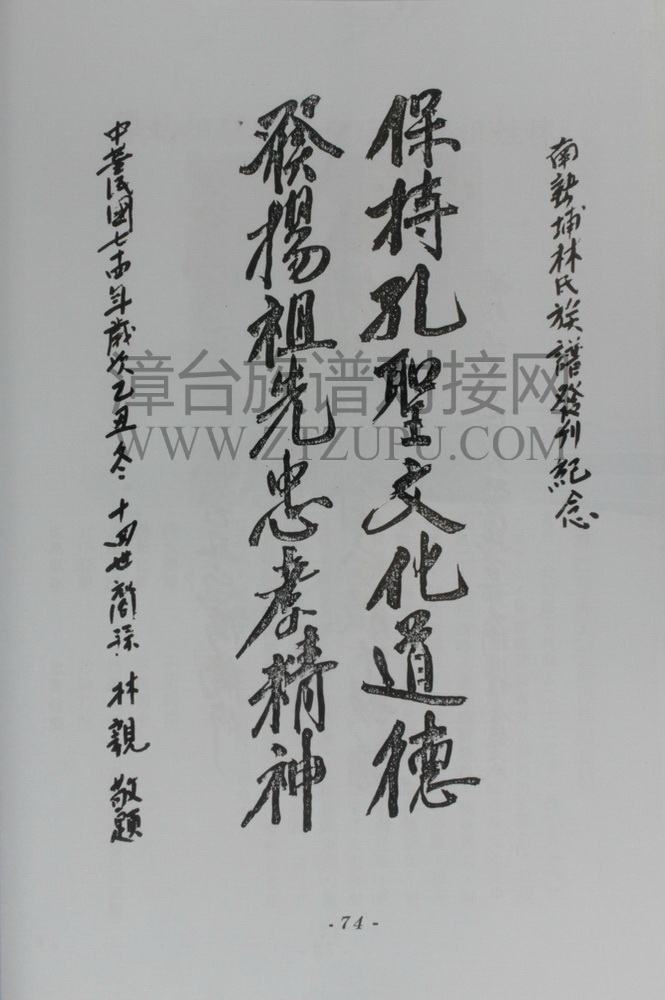 南新埔林氏族譜發刊紀念
保持孔聖文化道德
發揚祖先忠孝精神
中華民國七十四年歲次乙丑冬 十四世裔孫 林親 敬題
章台族谱对接网
WWW.ZTZUPU.COM
- 74 -